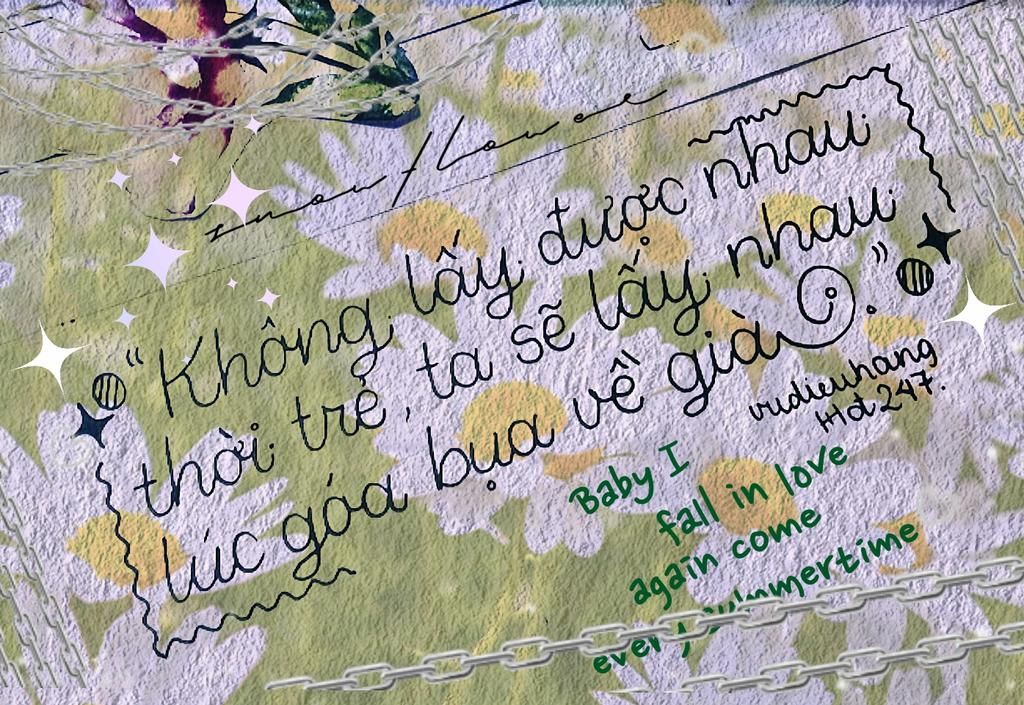 “Không lấy được nhau
thời trẻ, ta sẽ lấy nhau
lúc góa bụa về già.”
vudieuhang
Hot 247.
Baby I
fall in love
again come
every summertime